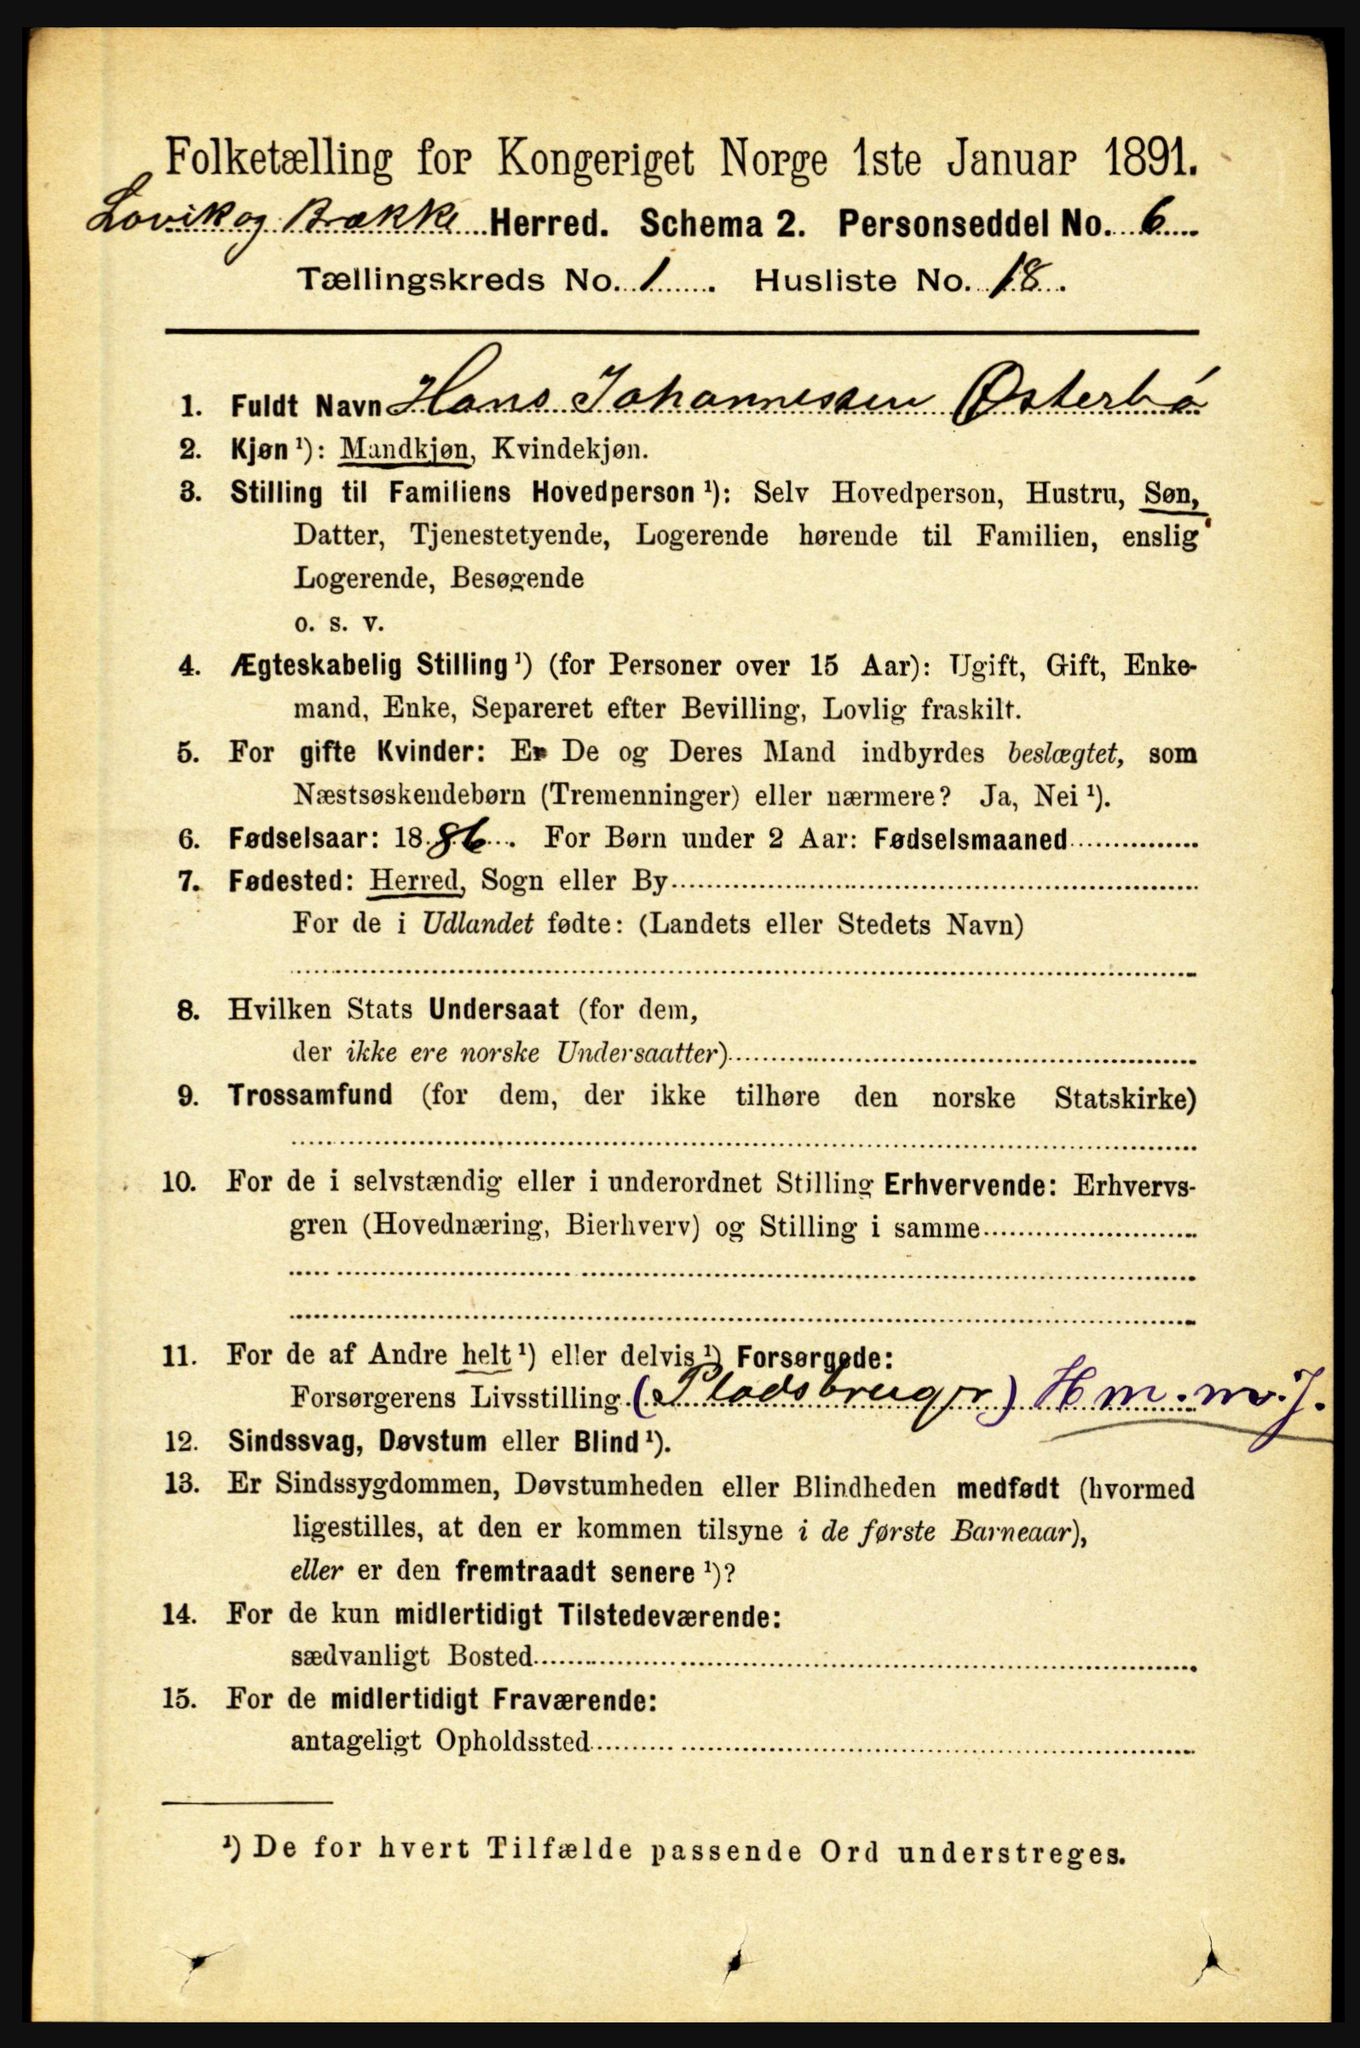 Folketælling for Kongeriget Norge 1ste Januar 1891.
Lavik og Brække Herred. Schema 2. Personseddel No. 6
Tællingskreds No. 1. Husliste No. 18.
1. Fuldt Navn Hans Johannessen Østerbø
2. Kjøn ¹): Mandkjøn, Kvindekjøn.
3. Stilling til Familiens Hovedperson ¹): Selv Hovedperson, Hustru, Søn,
Datter, Tjenestetyende, Logerende hørende til Familien, enslig
Logerende, Besøgende
o. s. v.
4. Ægteskabelig Stilling ¹) (for Personer over 15 Aar): Ugift, Gift, Enke-
mand, Enke, Separeret efter Bevilling, Lovlig fraskilt.
5. For gifte Kvinder: Er De og Deres Mand indbyrdes beslægtet, som
Næstsøskendebørn (Tremenninger) eller nærmere? Ja, Nei ¹).
6. Fødselsaar: 1886. For Børn under 2 Aar: Fødselsmaaned
7. Fødested: Herred, Sogn eller By
For de i Udlandet fødte: (Landets eller Stedets Navn)
8. Hvilken Stats Undersaat (for dem,
der ikke ere norske Undersaatter)
9. Trossamfund (for dem, der ikke tilhøre den norske Statskirke)
10. For de i selvstændig eller i underordnet Stilling Erhvervende: Erhvervs-
gren (Hovednæring, Bierhverv) og Stilling i samme
11. For de af Andre helt ¹) eller delvis ¹) Forsørgede:
Forsørgerens Livsstilling (Pladsbruger) H m. m. J.
12. Sindssvag, Døvstum eller Blind ¹).
13. Er Sindssygdommen, Døvstumheden eller Blindheden medfødt (hvormed
ligestilles, at den er kommen tilsyne i de første Barneaar),
eller er den fremtraadt senere ¹)?
14. For de kun midlertidigt Tilstedeværende:
sædvanligt Bosted
15. For de midlertidigt Fraværende:
antageligt Opholdssted
¹) De for hvert Tilfælde passende Ord understreges.